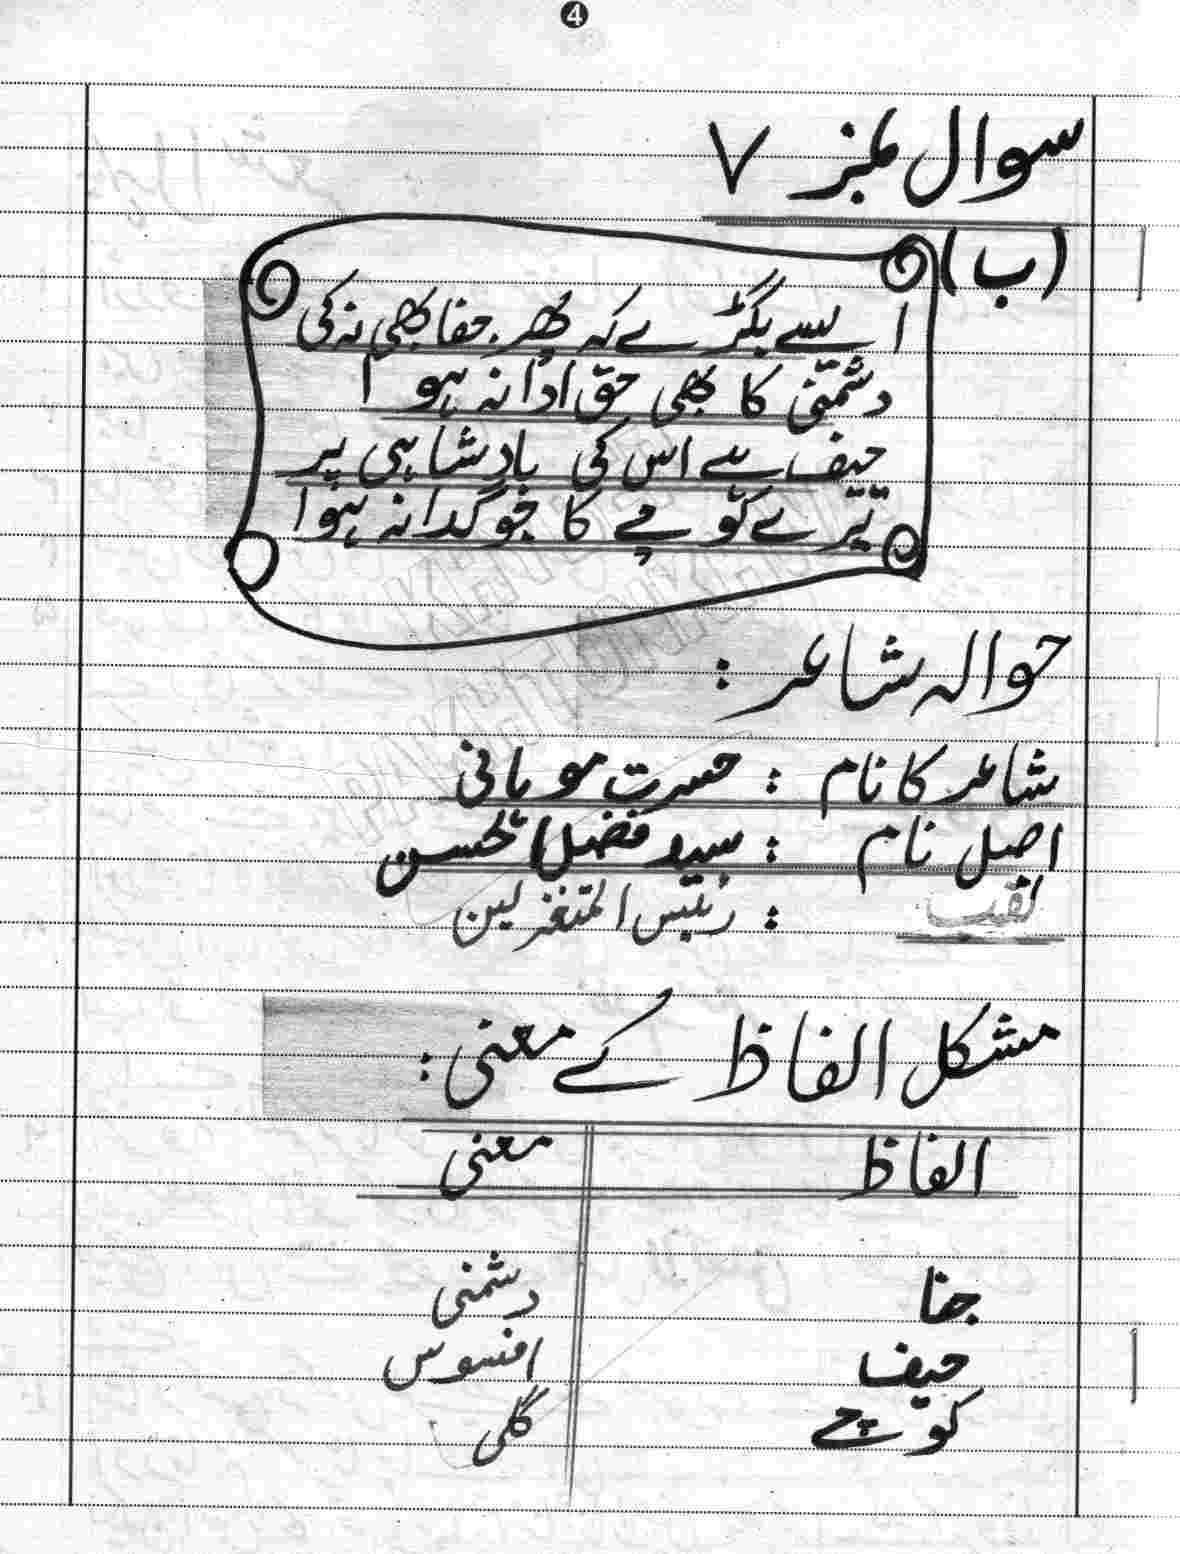 4
سوال نمبر ۷
(ب)
ایسے بگڑے کہ پھر جفا بھی نہ کی
دشمنی کا بھی حق ادا نہ ہوا
حیف ہے اس کی بادشاہی پر
تیرے کوچے کا جو گدا نہ ہوا
حوالہ شاعر :
شاعر کا نام : حسرت موہانی
اصل نام : سید فضل الحسن
لقب : رئیس المتغزلین
مشکل الفاظ کے معنی :
الفاظ معنی
جفا دشمنی
حیف افسوس
کوچے گلی